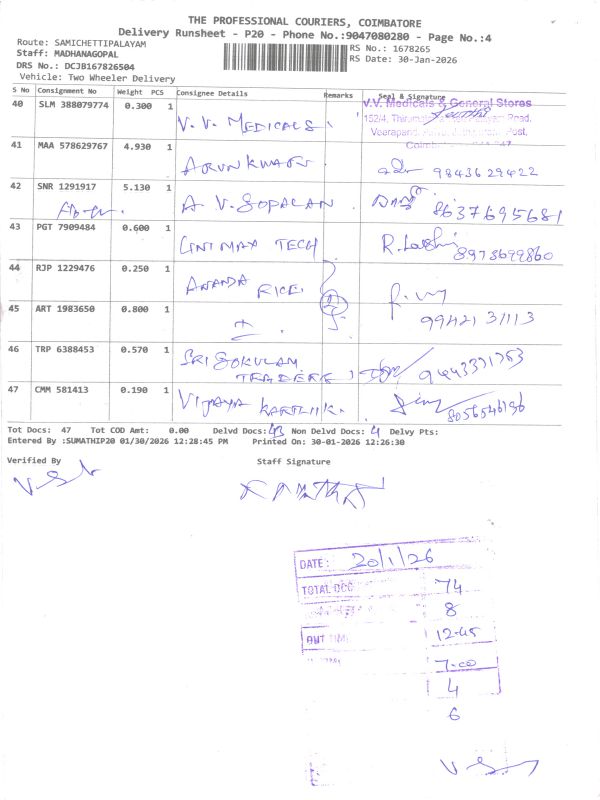 THE PROFESSIONAL COURIERS, COIMBATORE
Delivery Runsheet - P20 - Phone No.:9047080280 - Page No.:4
Route: SAMICHETTIPALAYAM
RS No.: 1678265
Staff: MADHANAGOPAL
RS Date: 30-Jan-2026
DRS No.: DCJB167826504
Vehicle: Two Wheeler Delivery
S No Consignment No Weight PCS Consignee Details Remarks Seal & Signature
40 SLM 388079774 0.300 1 V. V. MEDICALS
V.V. Medicals & General Stores
152/4, Road,
Veerapandi Post,
41 MAA 578629767 4.930 1 ARUN KUMAR 9843629422
42 SNR 1291917 5.130 1 A V. GOPALAN 8637695681
43 PGT 7909484 0.600 1 CINIMAX TECH R. 8973699860
44 RJP 1229476 0.250 1 ANANDA RICE.
45 ART 1983650 0.800 1 99421 31113
46 TRP 6388453 0.570 1 SRI GOKULAM TRADERS 9443371763
47 CMM 581413 0.190 1 VIJAYA KARTHIK. 8056546196
Tot Docs: 47 Tot COD Amt: 0.00 Delvd Docs: 43 Non Delvd Docs: 4 Delvy Pts:
Entered By :SUMATHIP20 01/30/2026 12:28:45 PM Printed On: 30-01-2026 12:26:30
Verified By Staff Signature
DATE: 20/1/26
TOTAL DOC 74
8
OUT TIME 12-45
7-00
4
6